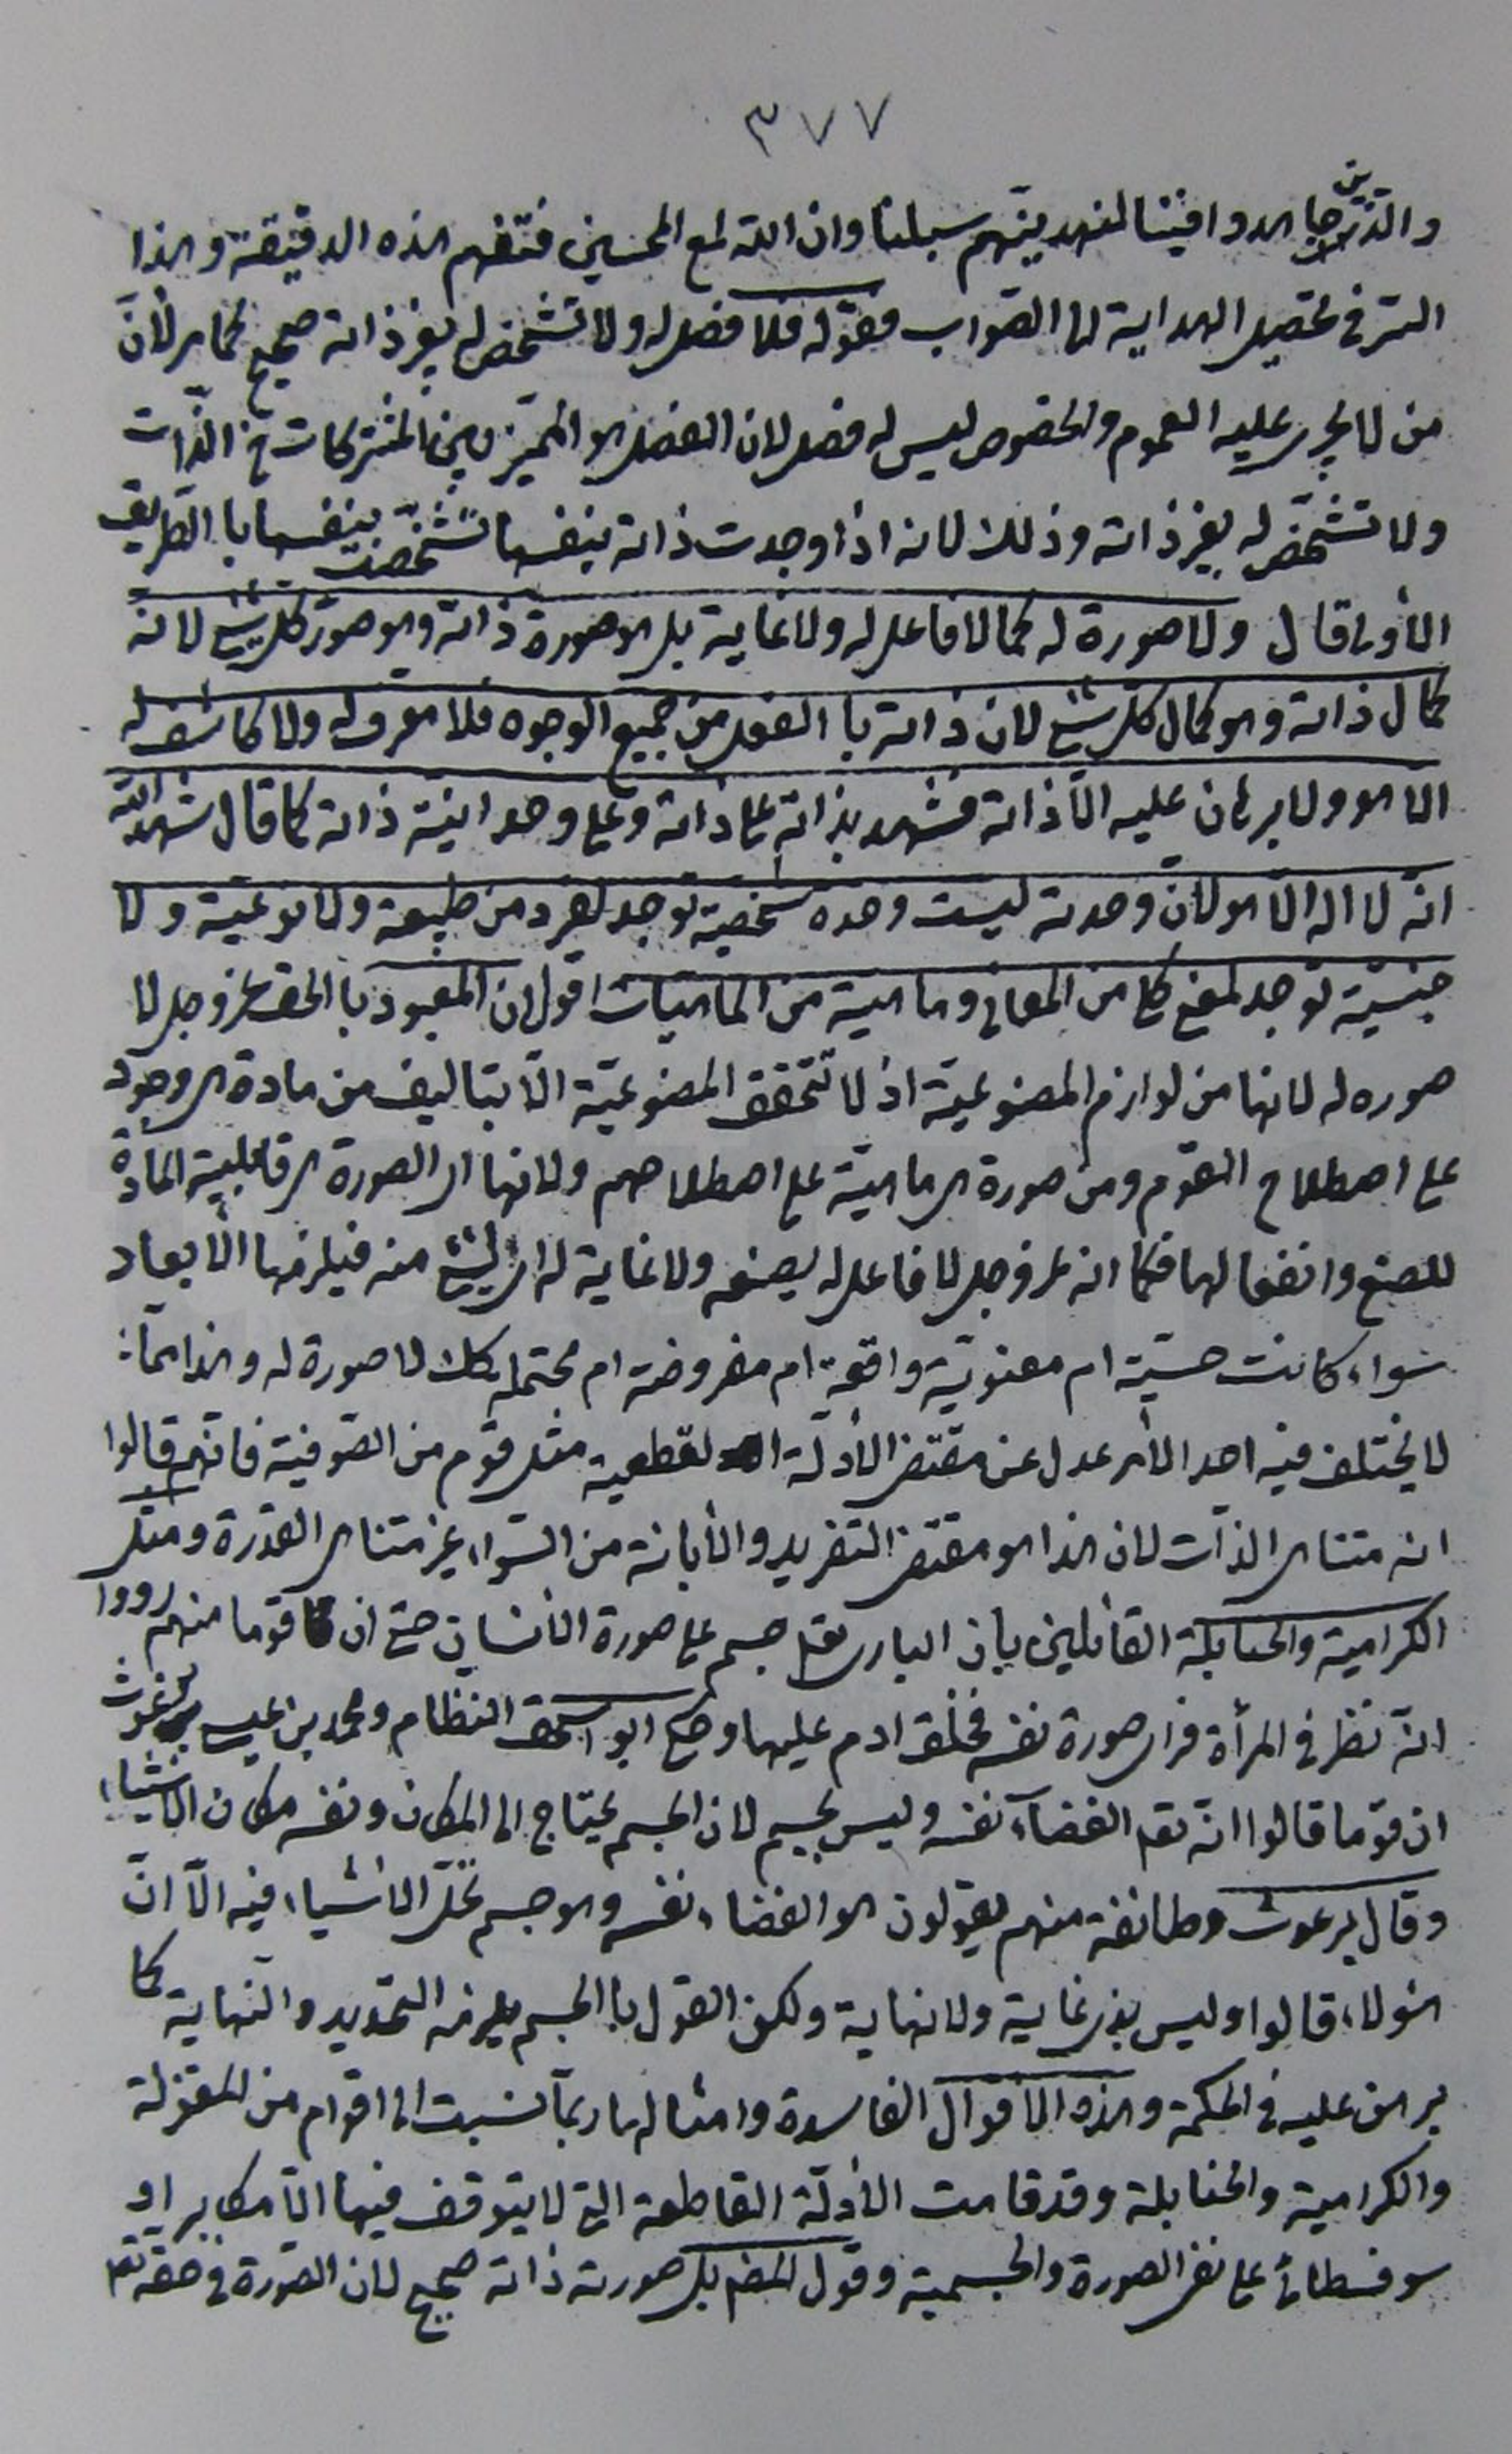 ٣٧٧
والذين جاهدوا فينا لنهدينهم سبلنا وان الله لمع المحسنين فتفهم هذه الدقيقة وهذا
السّر في تحصيل الهداية الى الصّواب فقوله فلا فصل له ولا تشخص له بغير ذاته صحيح كما مر لأنّ
من لا يجرى عليه العموم والخصوص ليس له فصل لان الفصل هو المميّز بين المشتركات في الذّات
ولا تشخّص له بغير ذاته وذلك لانه اذا وجدت ذاته بنفسها تشخّصت بنفسها با الطّريق
الأولى قال ولا صورة له كما لا فاعل له ولا غاية بل هو صورة ذاته وهو صورة كل شئ لانه
كمال ذاته وهو كمال كل شئ لان ذاته با الفعل من جميع الوجوه فلا معرف له ولا كاشف له
الّا هو ولا برهان عليه الّا ذاته فشهد بذاته على ذاته وعلى وحدانيّة ذاته كما قال شهد الله
انّه لا اله الّا هو لانّ وحدته ليست وحدة شخصية توجد لفرد من طبيعة ولا نوعيّة ولا
جنسيّة توجد لمعنى كلى من المعانى وماهية من الماهيات اقول ان المعبود با الحق عز وجل لا
صوره له لانها من لوازم المصنوعيّة اذ لا تتحقق المصنوعيّة الّا بتاليف من مادة هى وجود
على اصطلاح القوم ومن صورة هى ماهيّة على اصطلاحهم ولانها اى الصورة هى قابلية المادّة
للصنع وانفعالها فكما انه عز وجل لا فاعل له يصنعه ولا غاية له اى لشئ منه فيلزمها الأبعاد
سواء كانت حسّية ام معنويّة واقعة ام مفروضة ام محتمله كك لا صورة له وهذا ممّا
لا يختلف فيه احد الّا من عدل عن مقتضى الأدلّة القطعية مثل قوم من الصّوفيّة فانّهم قالوا
انه متناهى الذّات لان هذا هو مقتضى التفريد والأبانة من السّواء غير متناهى القدرة ومثل
الكرامية والحنابلة القائلين بان البارى تعالى جسم على صورة الأنسان حتى ان قوما منهم رووا
انّه نظر في المرأة فراى صورة نفسه فخلق ادم عليها وحكى ابو اسحق النظّام ومحمد بن عيسى برغوث
ان قوما قالوا انّه تعالى الفضاء نفسه وليس بجسم لان الجسم يحتاج الى المكان ونفسه مكان الاشياء
وقال برغوث وطائفة منهم يقولون هو الفضاء نفسه وهو جسم تحلّ الأشياء فيه الّا انّ
هؤلاء قالوا وليس بذى غاية ولا نهاية ولكن القول با الجسم يلزمه التحديد والنّهاية كما
برهن عليه في الحكمة وهذه الأقوال الفاسدة وامثالها ربما نسبت الى اقوام من المعتزلة
والكرامية والحنابلة وقد قامت الأدلّة القاطعة التى لا يتوقف فيها الّا مكابر او
سوفسطائى على نفى الصورة والجسمية وقول المصنف بل صورته ذاته صحيح لان الصّورة في حقه تعالى